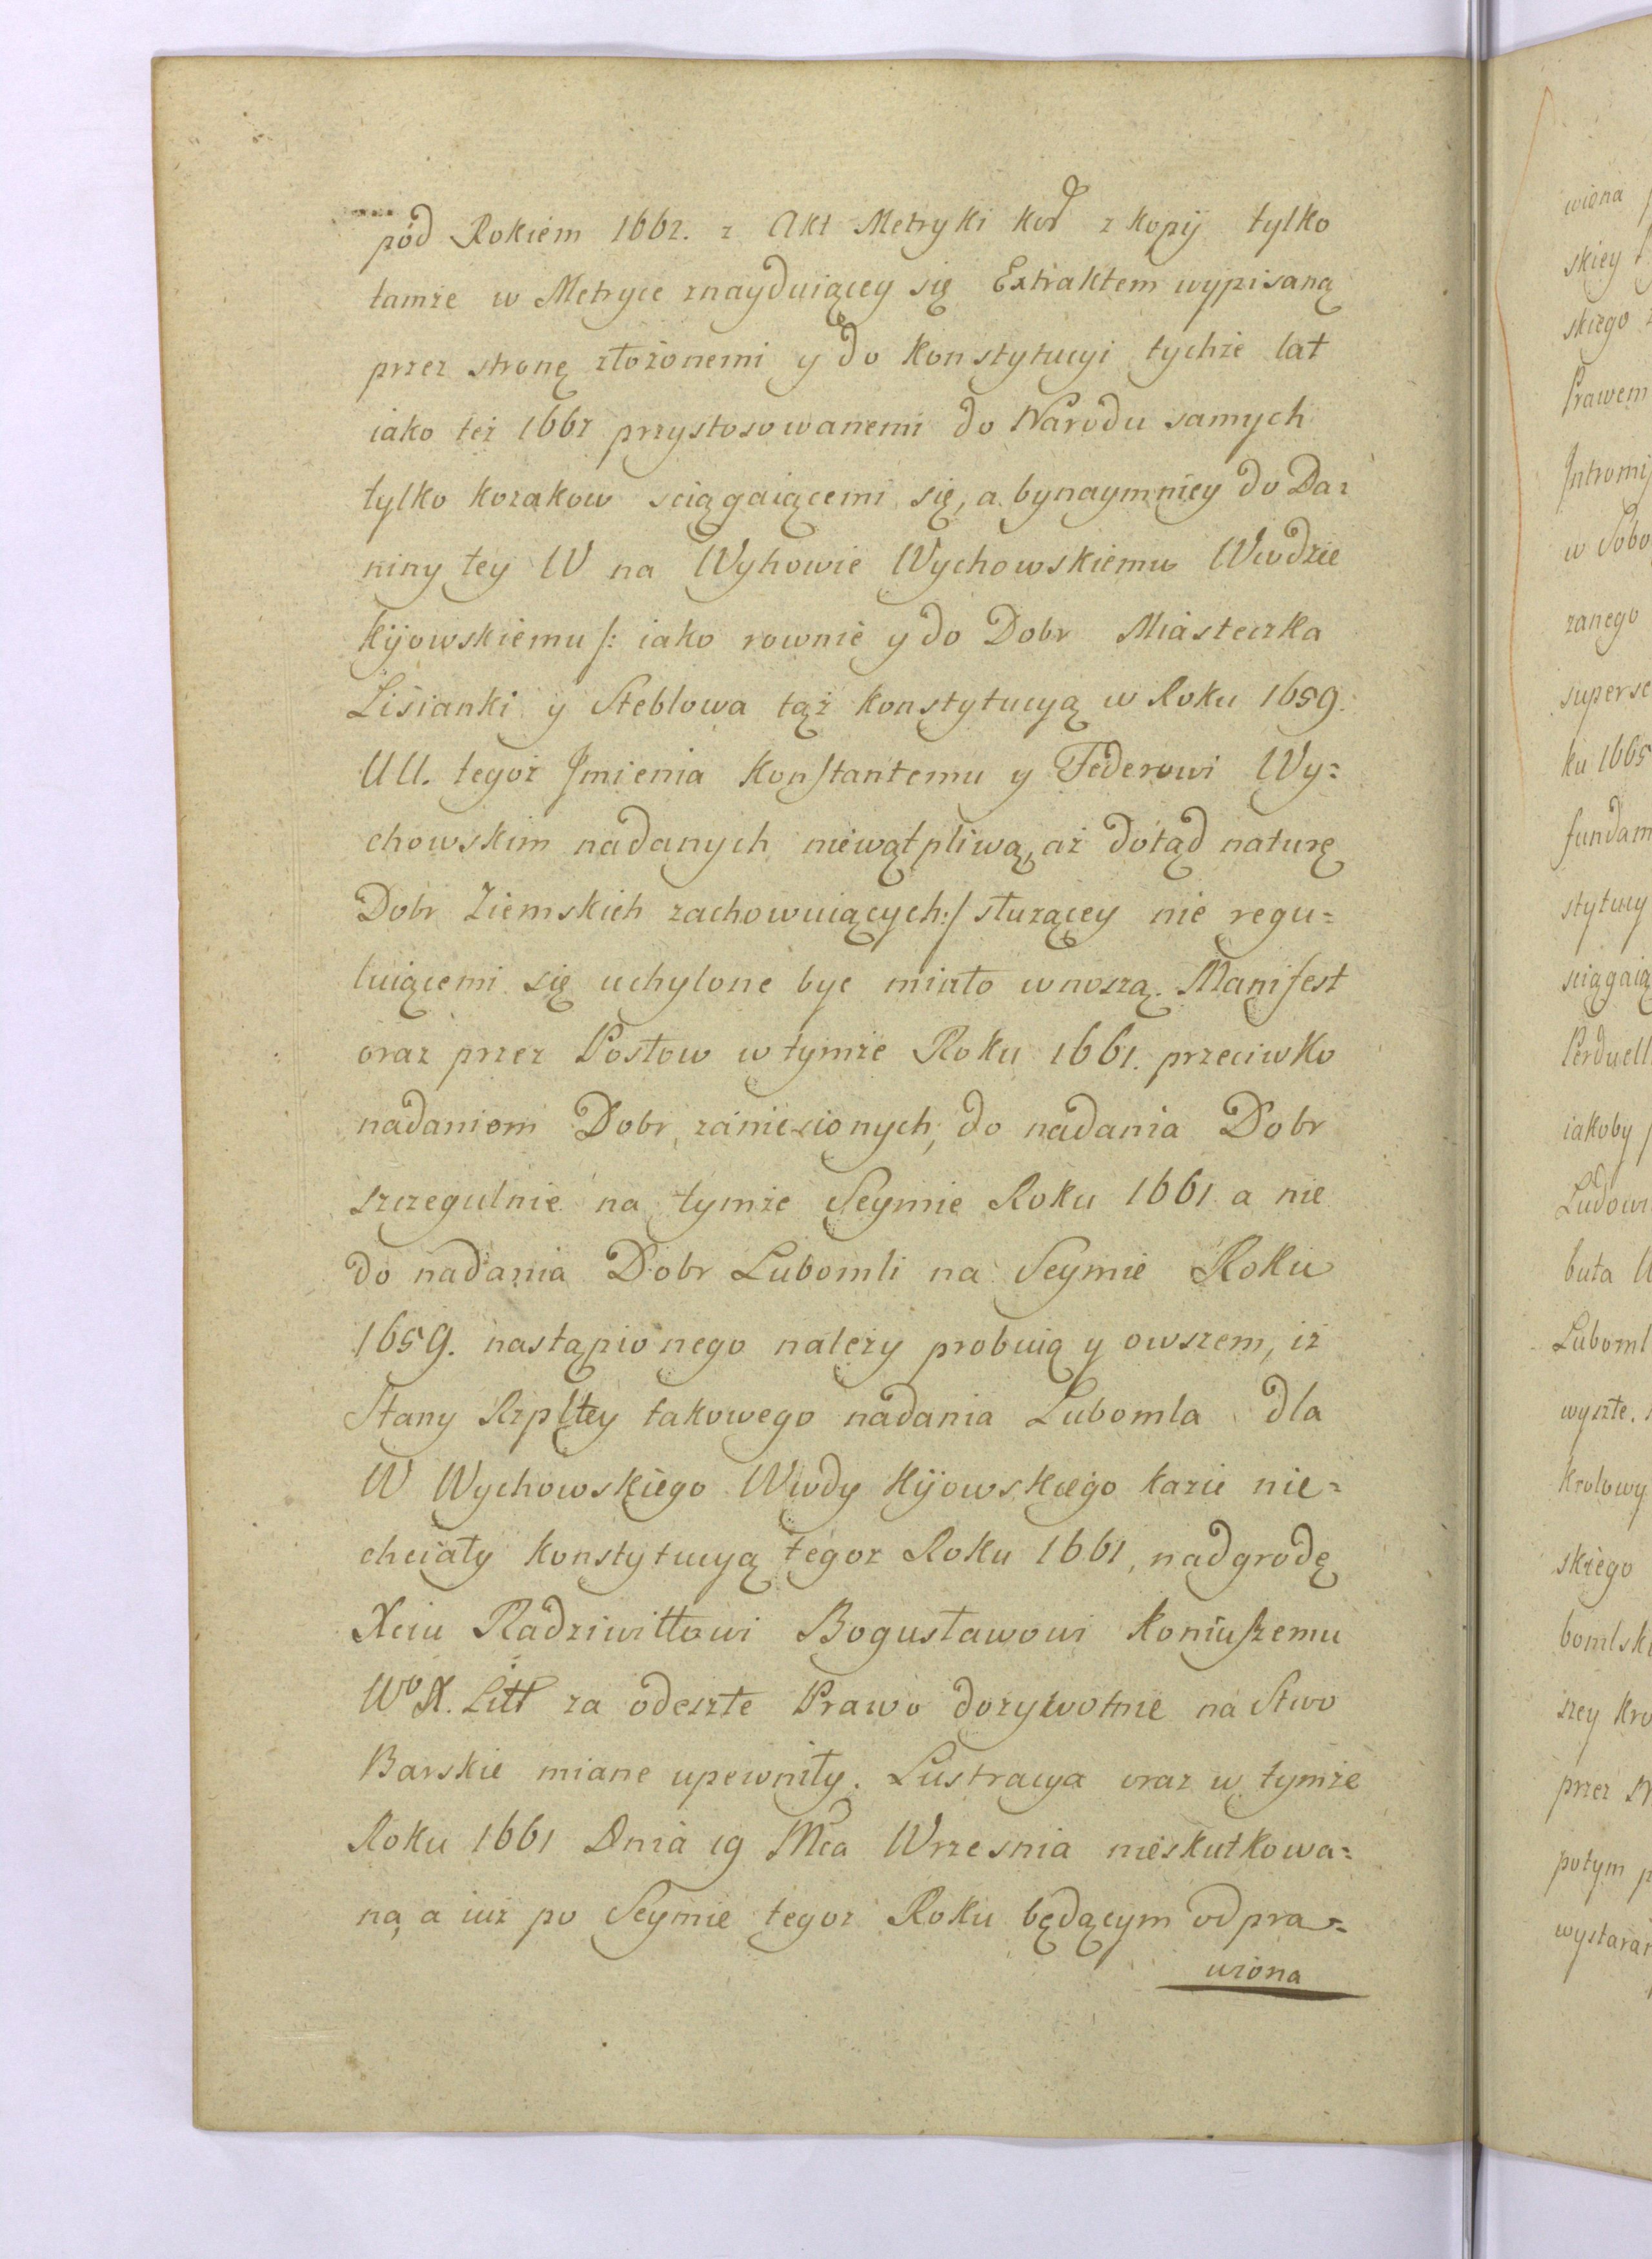 pod Rokiem 1662. z Akt Metryki Kor z kopij tylko
tamże w Metryce znayduiącey się Extraktem wypisaną
przez stronę złożonemi y do Konstytucyi tychże lat
iako też 1667 przystosowanemi do Narodu samych
tylko kozakow sciągaiącemi się, a bynaymniey do Da=
niny tey W na Wyhowie Wychowskiemu Wwodzie
Kijowskiemu /: iako rownie y do Dobr Miasteczka
Lisianki y Steblowa tąż konstytucyą w Roku 1659.
UU. tegoż Jmienia Konstantemu y Federowi Wy=
chowskim nadanych niewątpliwą, aż dotąd naturę
Dobr Ziemskich zachowuiących :/ służącey nie regu=
luiącemi się uchylone byc miało wnoszą. Manifest
oraz przez Posłow w tymże Roku 1661. przeciwko
nadaniom Dobr zaniesionych, do nadania Dobr
szczegulnie na tymże Seymie Roku 1661 a nie
do nadania Dobr Lubomli na Seymie Roku
1659. nastąpionego należy probuią y owszem, iż
Stany Rzpltey takowego nadania Lubomla dla
W Wychowskiego Wwdy Kijowskiego kazić nie=
chciały konstytucyą tegoż Roku 1661, nadgrodę
Xciu Radziwiłłowi Bogusławowi Koniuszemu
Wo X. Litt za odeszłe Prawo dożywotnie na Stwo
Barskie miane upewniły. Lustracya oraz w tymże
Roku 1661 Dnia 19 Mca Wrzesnia nieskutkowa=
ną a iuż po Seymie tegoż Roku będącym odpra=
wiona
wiona
skiey
skiego
Prawem
Intromi
w Sobo
zanego
superse
ku 1665
fundam
stytucy
sciągaią
Perduell
iakoby
Ludowi
buta
Luboml
wyszłe.
Krolowy
skiego
bomlski
szey Kro
przez
potym
wystarar